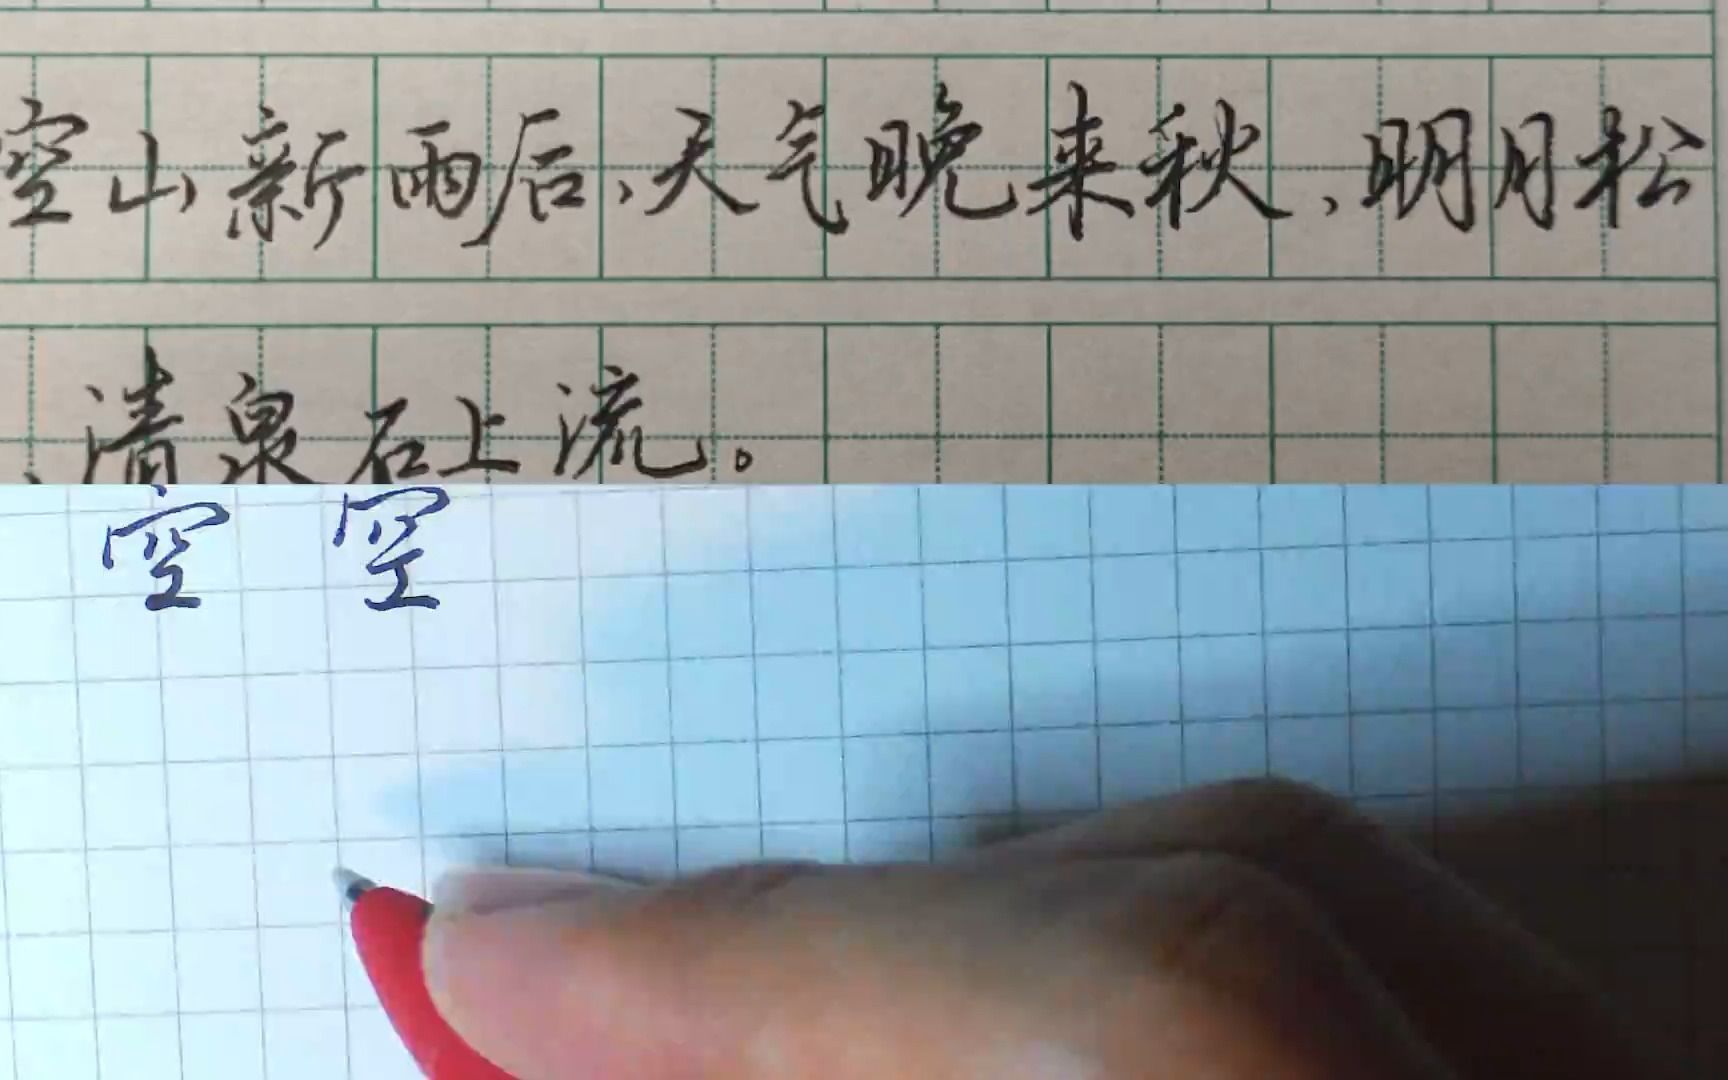 空山新雨后、天气晚来秋、明月松
、清泉石上流。
空 空